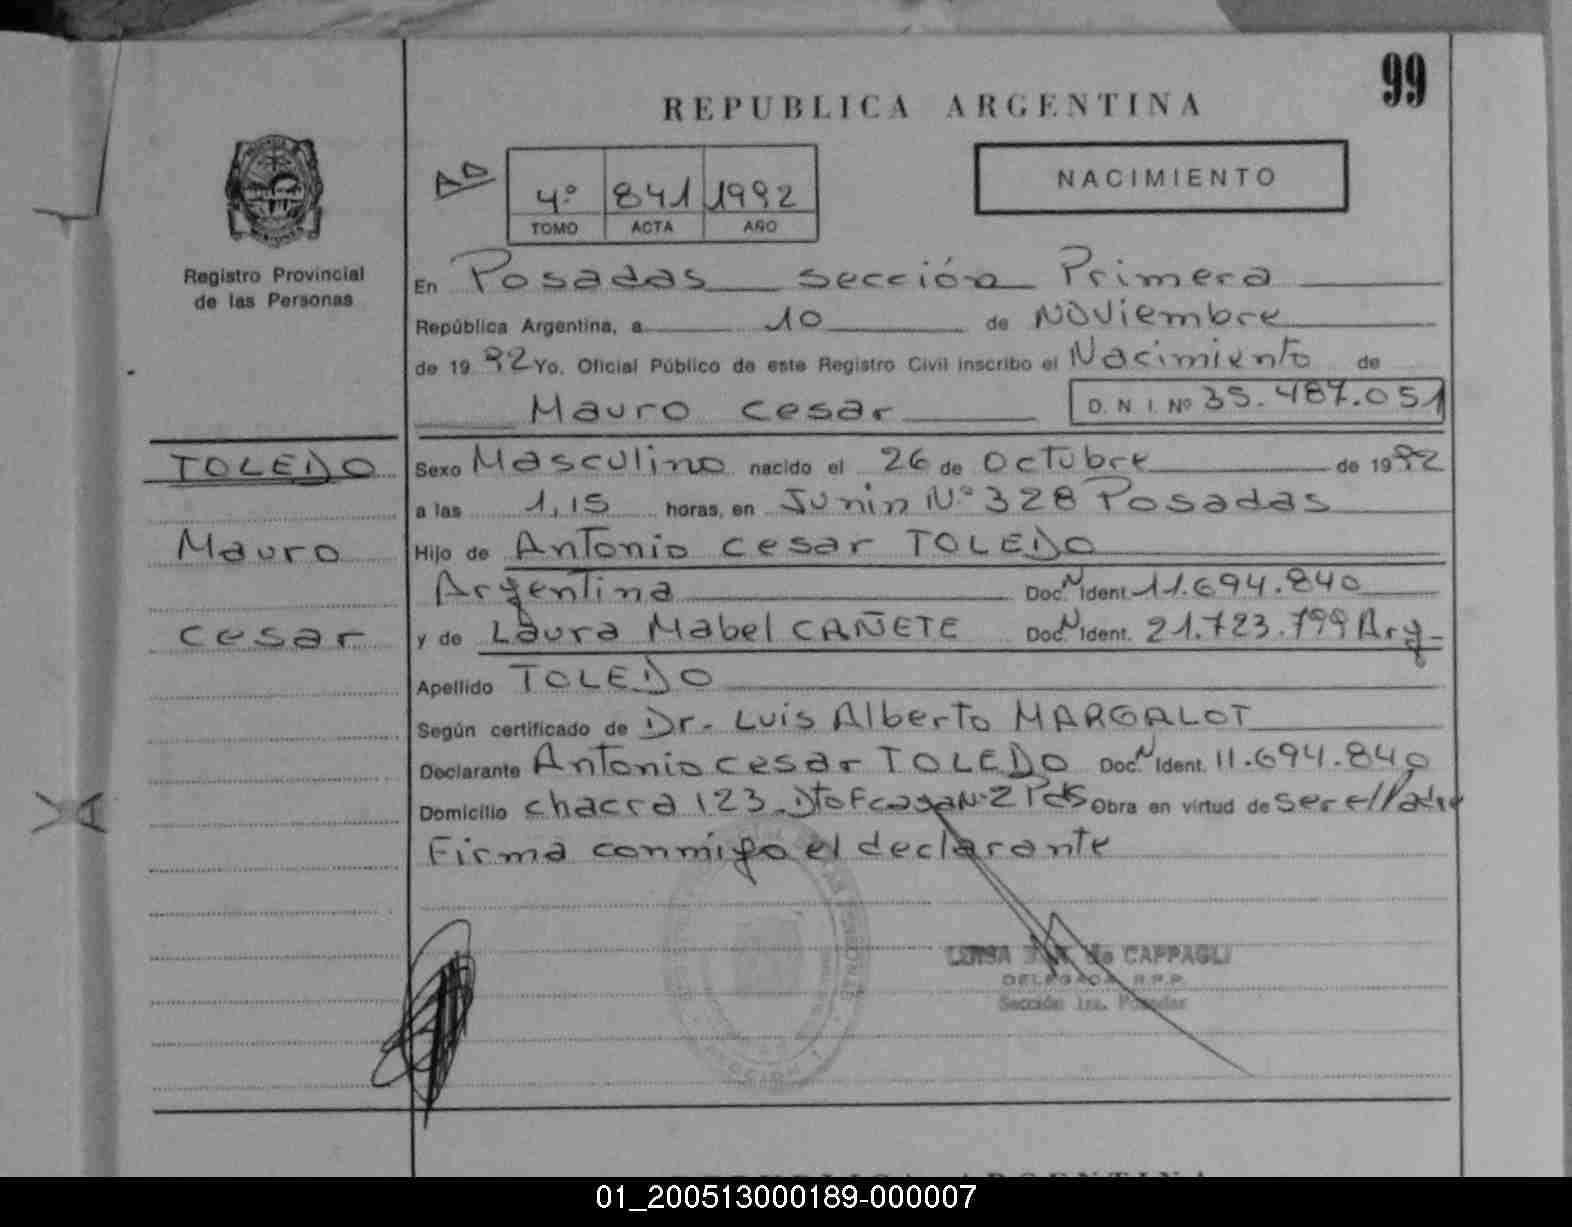 99
REPUBLICA ARGENTINA
AD
4º 841 1992
TOMO ACTA AÑO
NACIMIENTO
Registro Provincial
de las Personas
En Posadas sección Primera
República Argentina, a 10 de Noviembre
de 1992 Yo, Oficial Público de este Registro Civil inscribo el Nacimiento de
Mauro cesar D. N. I. Nº 35.487.051
TOLEDO
Mauro
cesar
Sexo Masculino nacido el 26 de octubre de 1992
a las 1,15 horas, en Junin Nº 328 Posadas
Hijo de Antonio cesar TOLEDO
Argentina Doc. N Ident. 11.694.840
y de Laura Mabel CAÑETE Doc. N Ident. 21.723.799 Arg
Apellido TOLEDO
Según certificado de Dr. Luis Alberto MARGALOT
Declarante Antonio cesar TOLEDO Doc. N Ident. 11.694.840
Domicilio chacra 123 Dto F casa Nº 2 Pdas Obra en virtud de ser el Padre
Firma conmigo el declarante
de CAPPAGLI
DELEGADA R.P.P.
Sección 1ra. Posadas
01_200513000189-000007